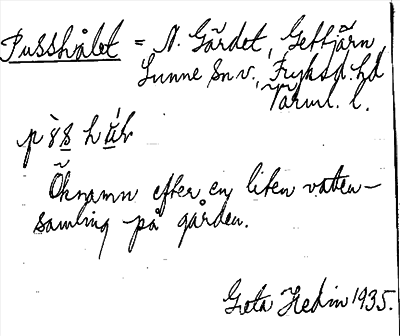 Pusshålet = N. Gärdet, Gettjärn
Sunne sn.v., Fryksd. hd
Värml. l.
Öknamn efter en liten vatten-
samling på gården.
Greta Hedin 1935.